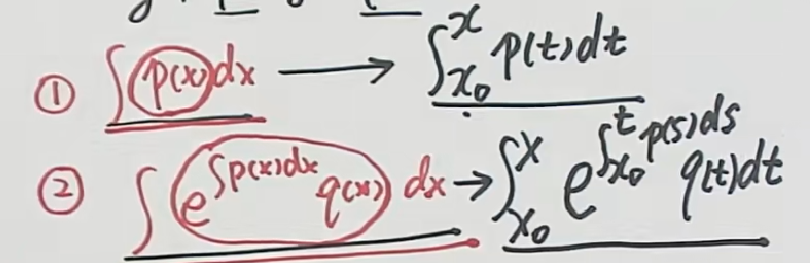 ① ∫p(x)dx → ∫_{x₀}^{x} p(t)dt
② ∫e^{∫p(x)dx} q(x) dx → ∫_{x₀}^{x} e^{∫_{x₀}^{t} p(s)ds} q(t)dt